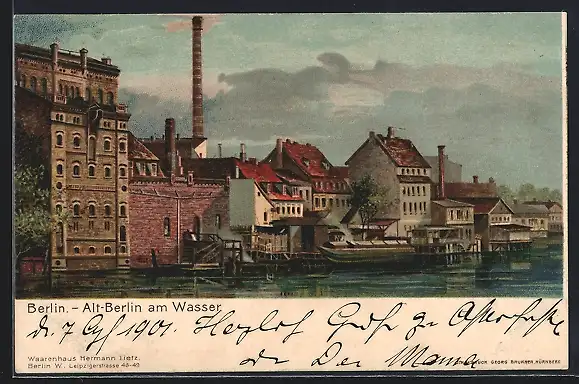 Berlin. – Alt-Berlin am Wasser.
d. 7 1901. Herzlich Gruß zu Osterfeste
Waarenhaus Hermann Tietz.
Berlin W. Leipzigerstrasse 46-49
Mama
DRUCK GEORG BRUNNER, NÜRNBERG